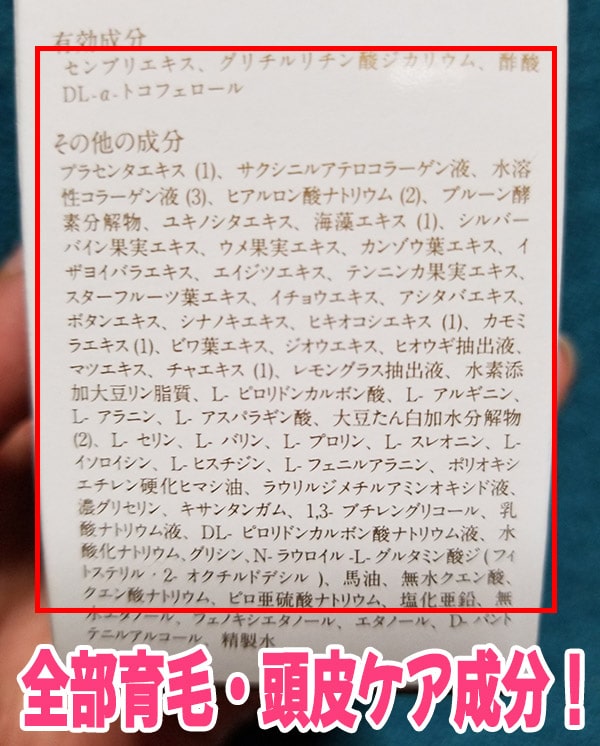 有効成分
センブリエキス、グリチルリチン酸ジカリウム、酢酸
DL-α-トコフェロール
その他の成分
プラセンタエキス (1)、サクシニルアテロコラーゲン液、水溶
性コラーゲン液 (3)、ヒアルロン酸ナトリウム (2)、プルーン酵
素分解物、ユキノシタエキス、海藻エキス (1)、シルバー
バイン果実エキス、ウメ果実エキス、カンゾウ葉エキス、イ
ザヨイバラエキス、エイジツエキス、テンニンカ果実エキス、
スターフルーツ葉エキス、イチョウエキス、アシタバエキス、
ボタンエキス、シナノキエキス、ヒキオコシエキス (1)、カモミ
ラエキス (1)、ビワ葉エキス、ジオウエキス、ヒオウギ抽出液、
マツエキス、チャエキス (1)、レモングラス抽出液、水素添
加大豆リン脂質、L- ピロリドンカルボン酸、L- アルギニン、
L- アラニン、L- アスパラギン酸、大豆たん白加水分解物
(2)、L- セリン、L- バリン、L- プロリン、L- スレオニン、L-
イソロイシン、L-ヒスチジン、L-フェニルアラニン、ポリオキシ
エチレン硬化ヒマシ油、ラウリルジメチルアミンオキシド液、
濃グリセリン、キサンタンガム、1,3- ブチレングリコール、乳
酸ナトリウム液、DL- ピロリドンカルボン酸ナトリウム液、水
酸化ナトリウム、グリシン、N-ラウロイル-L-グルタミン酸ジ(フィ
トステリル・2- オクチルドデシル )、馬油、無水クエン酸、
クエン酸ナトリウム、ピロ亜硫酸ナトリウム、塩化亜鉛、無
水エタノール、フェノキシエタノール、エタノール、D- パント
テニルアルコール、精製水
全部育毛・頭皮ケア成分！